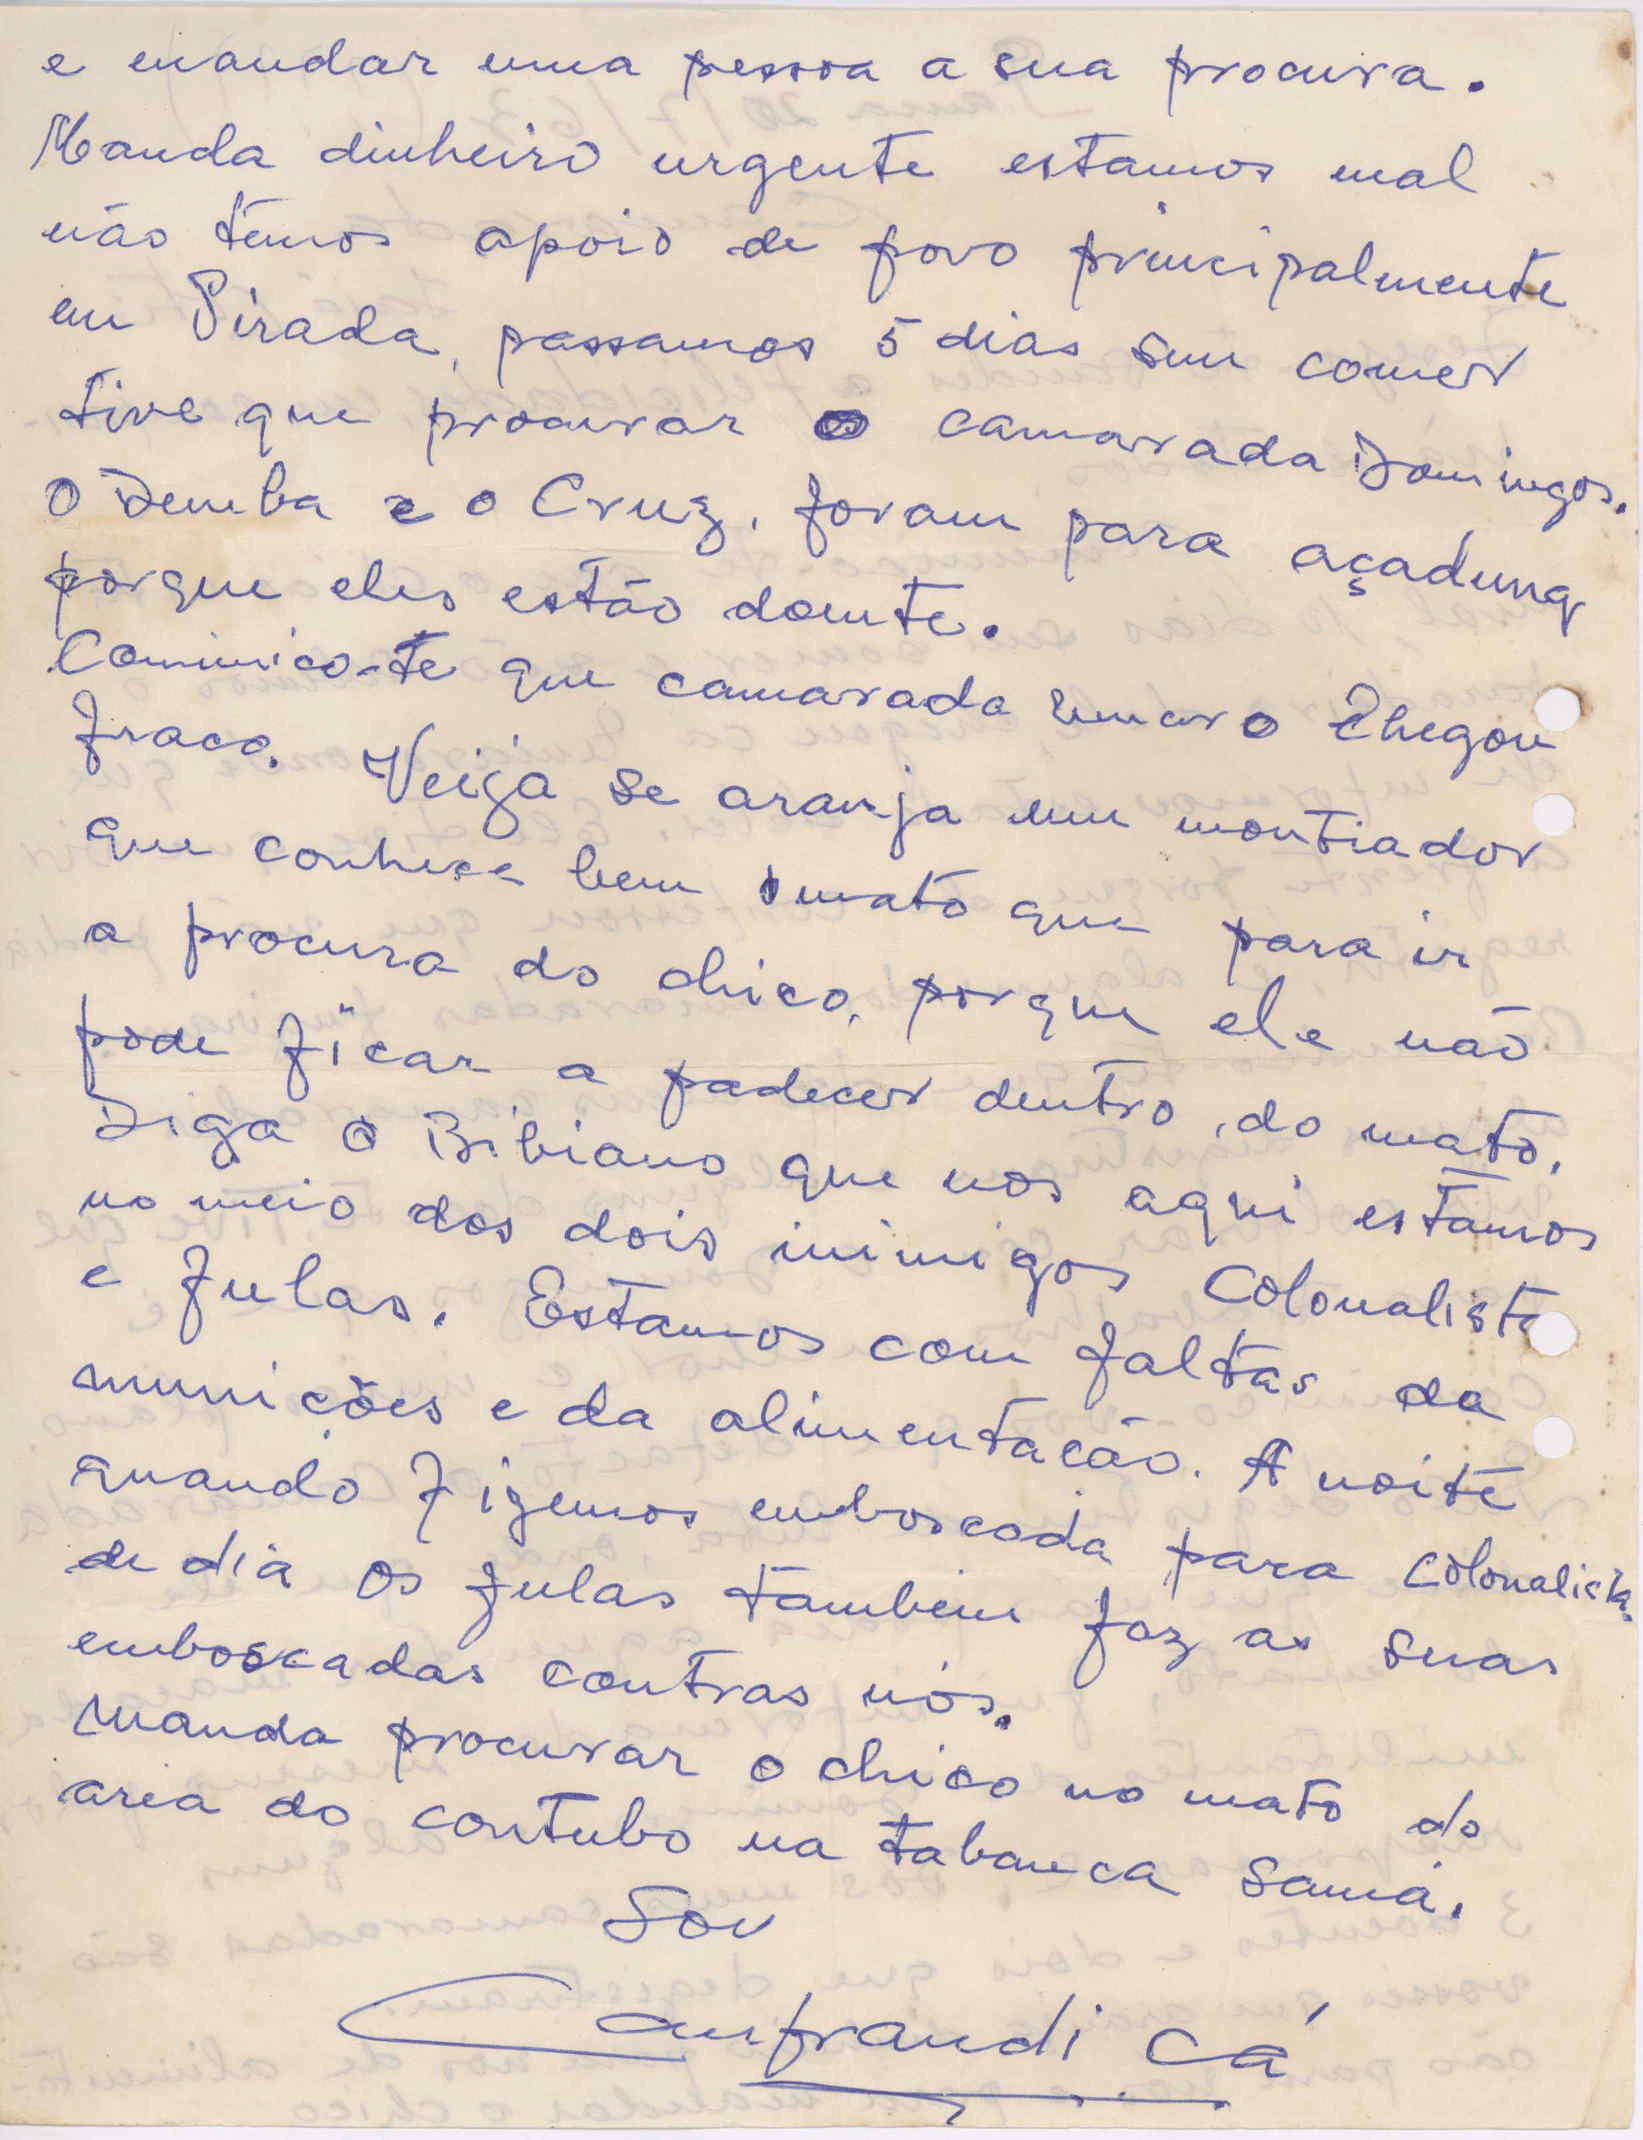 e mandar uma pessoa a sua procura.
Manda dinheiro urgente estamos mal
não temos apoio de povo principalmente
em Pirada, passamos 5 dias sem comer
tive que procurar o camarada Domingos.
O Demba e o Cruz, foram para
porque eles estão doente.
Cominico-te que camarada Umaro Chegou
fraco. Veija se aranja um montiador
que conhece bem o mato que para ir
a procura do chico, porque ele não
pode ficar a padecer dentro do mato.
Diga o Bibiano que nos aqui estamos
no meio dos dois inimigos Colonalista
e fulas. Estamos com faltas da
munições e da alimentacão. A noite
quando fizemos emboscada para colonalista
de dia os fulas tambem faz as suas
emboscadas contras nós.
Manda procurar o chico no mato do
area do contubo na tabanca Samá.
Sou
Canfrandi Cá